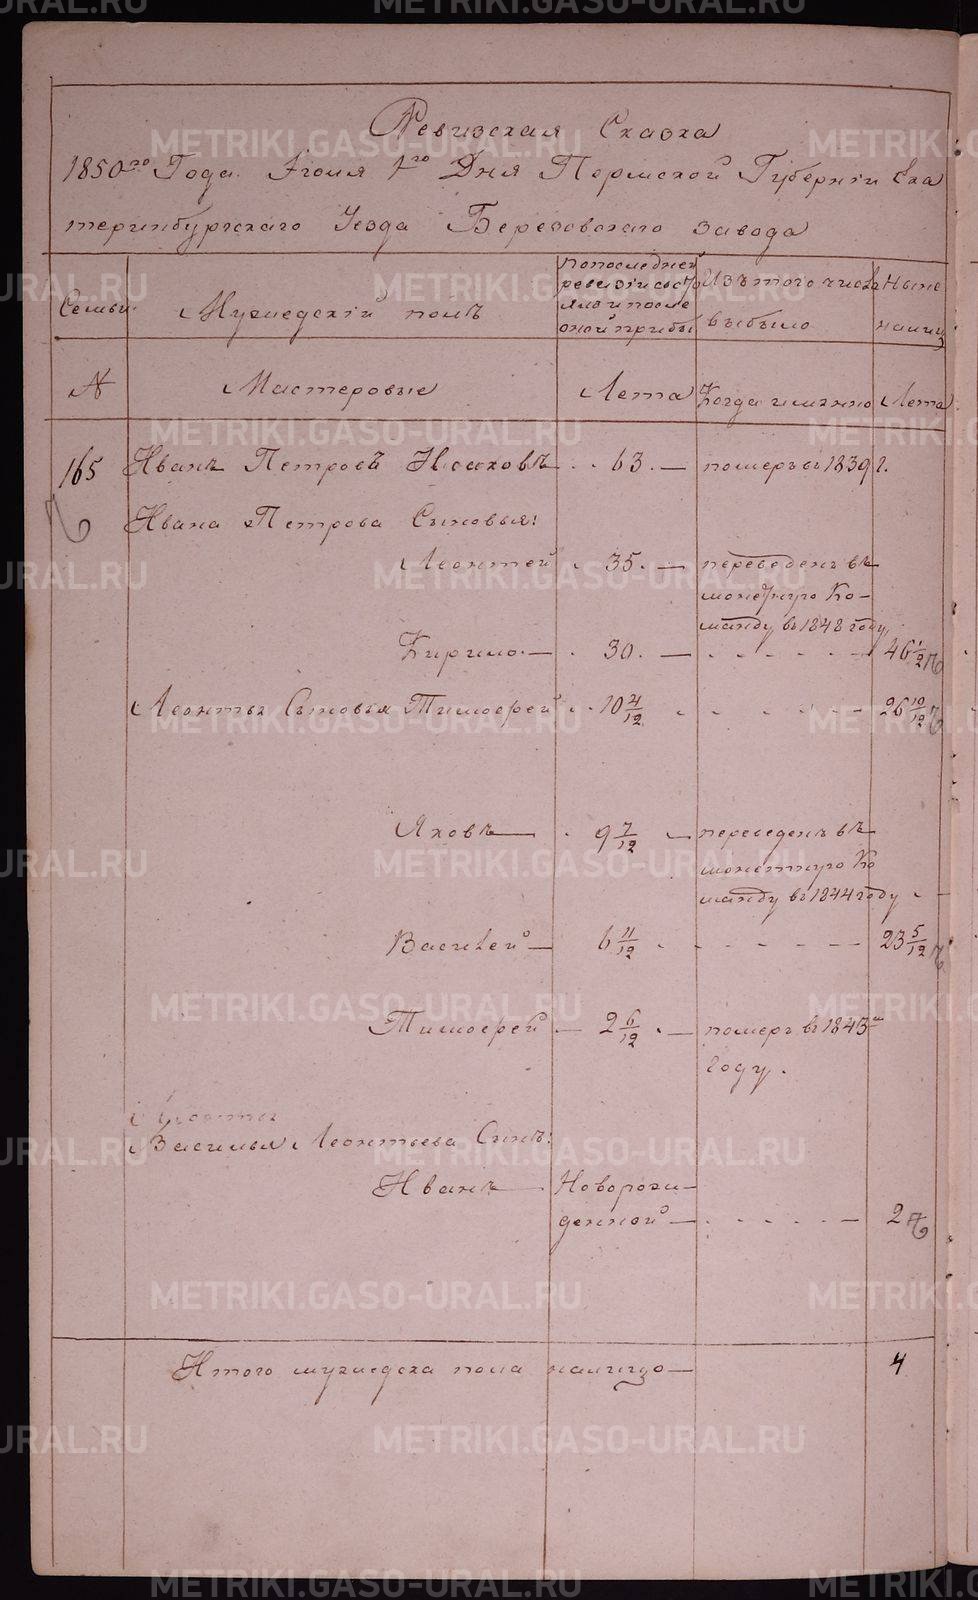 Ревизская Сказка
1850го Года Июня 1го Дня Пермской Губернiи Ека
теринбургскаго Уезда Березовскаго завода
Семьи
Мужедскiй полъ
по последней
ревезiи сост
яло и после
оной прибы
Изъ того числа
выбыло
Ныне
налицо
№
Мастеровые
Лета
Когда имянно
Лета
165 Иванъ Петровъ Исаковъ 63. померъ въ 1839 г.
Ивана Петрова Сыновья:
Леонтей 35. переведенъ въ
монетную Ко-
манду въ 1848 году
Кирило 30. 46 1/2
Леонтья Сыновья Тимофей 10 4/12 26 10/12
Яковъ 9 7/12 переведенъ въ
монетную Ко
манду въ 1844 году
Василей 6 11/12 23 5/12
Тимофей 2 6/12 померъ въ 1843
году.
Леонтья
Василья Леонтьева Сынъ:
Иванъ Новорож-
денной 2
Итого мужедска пола налицо 4
METRIKI.GASO-URAL.RU